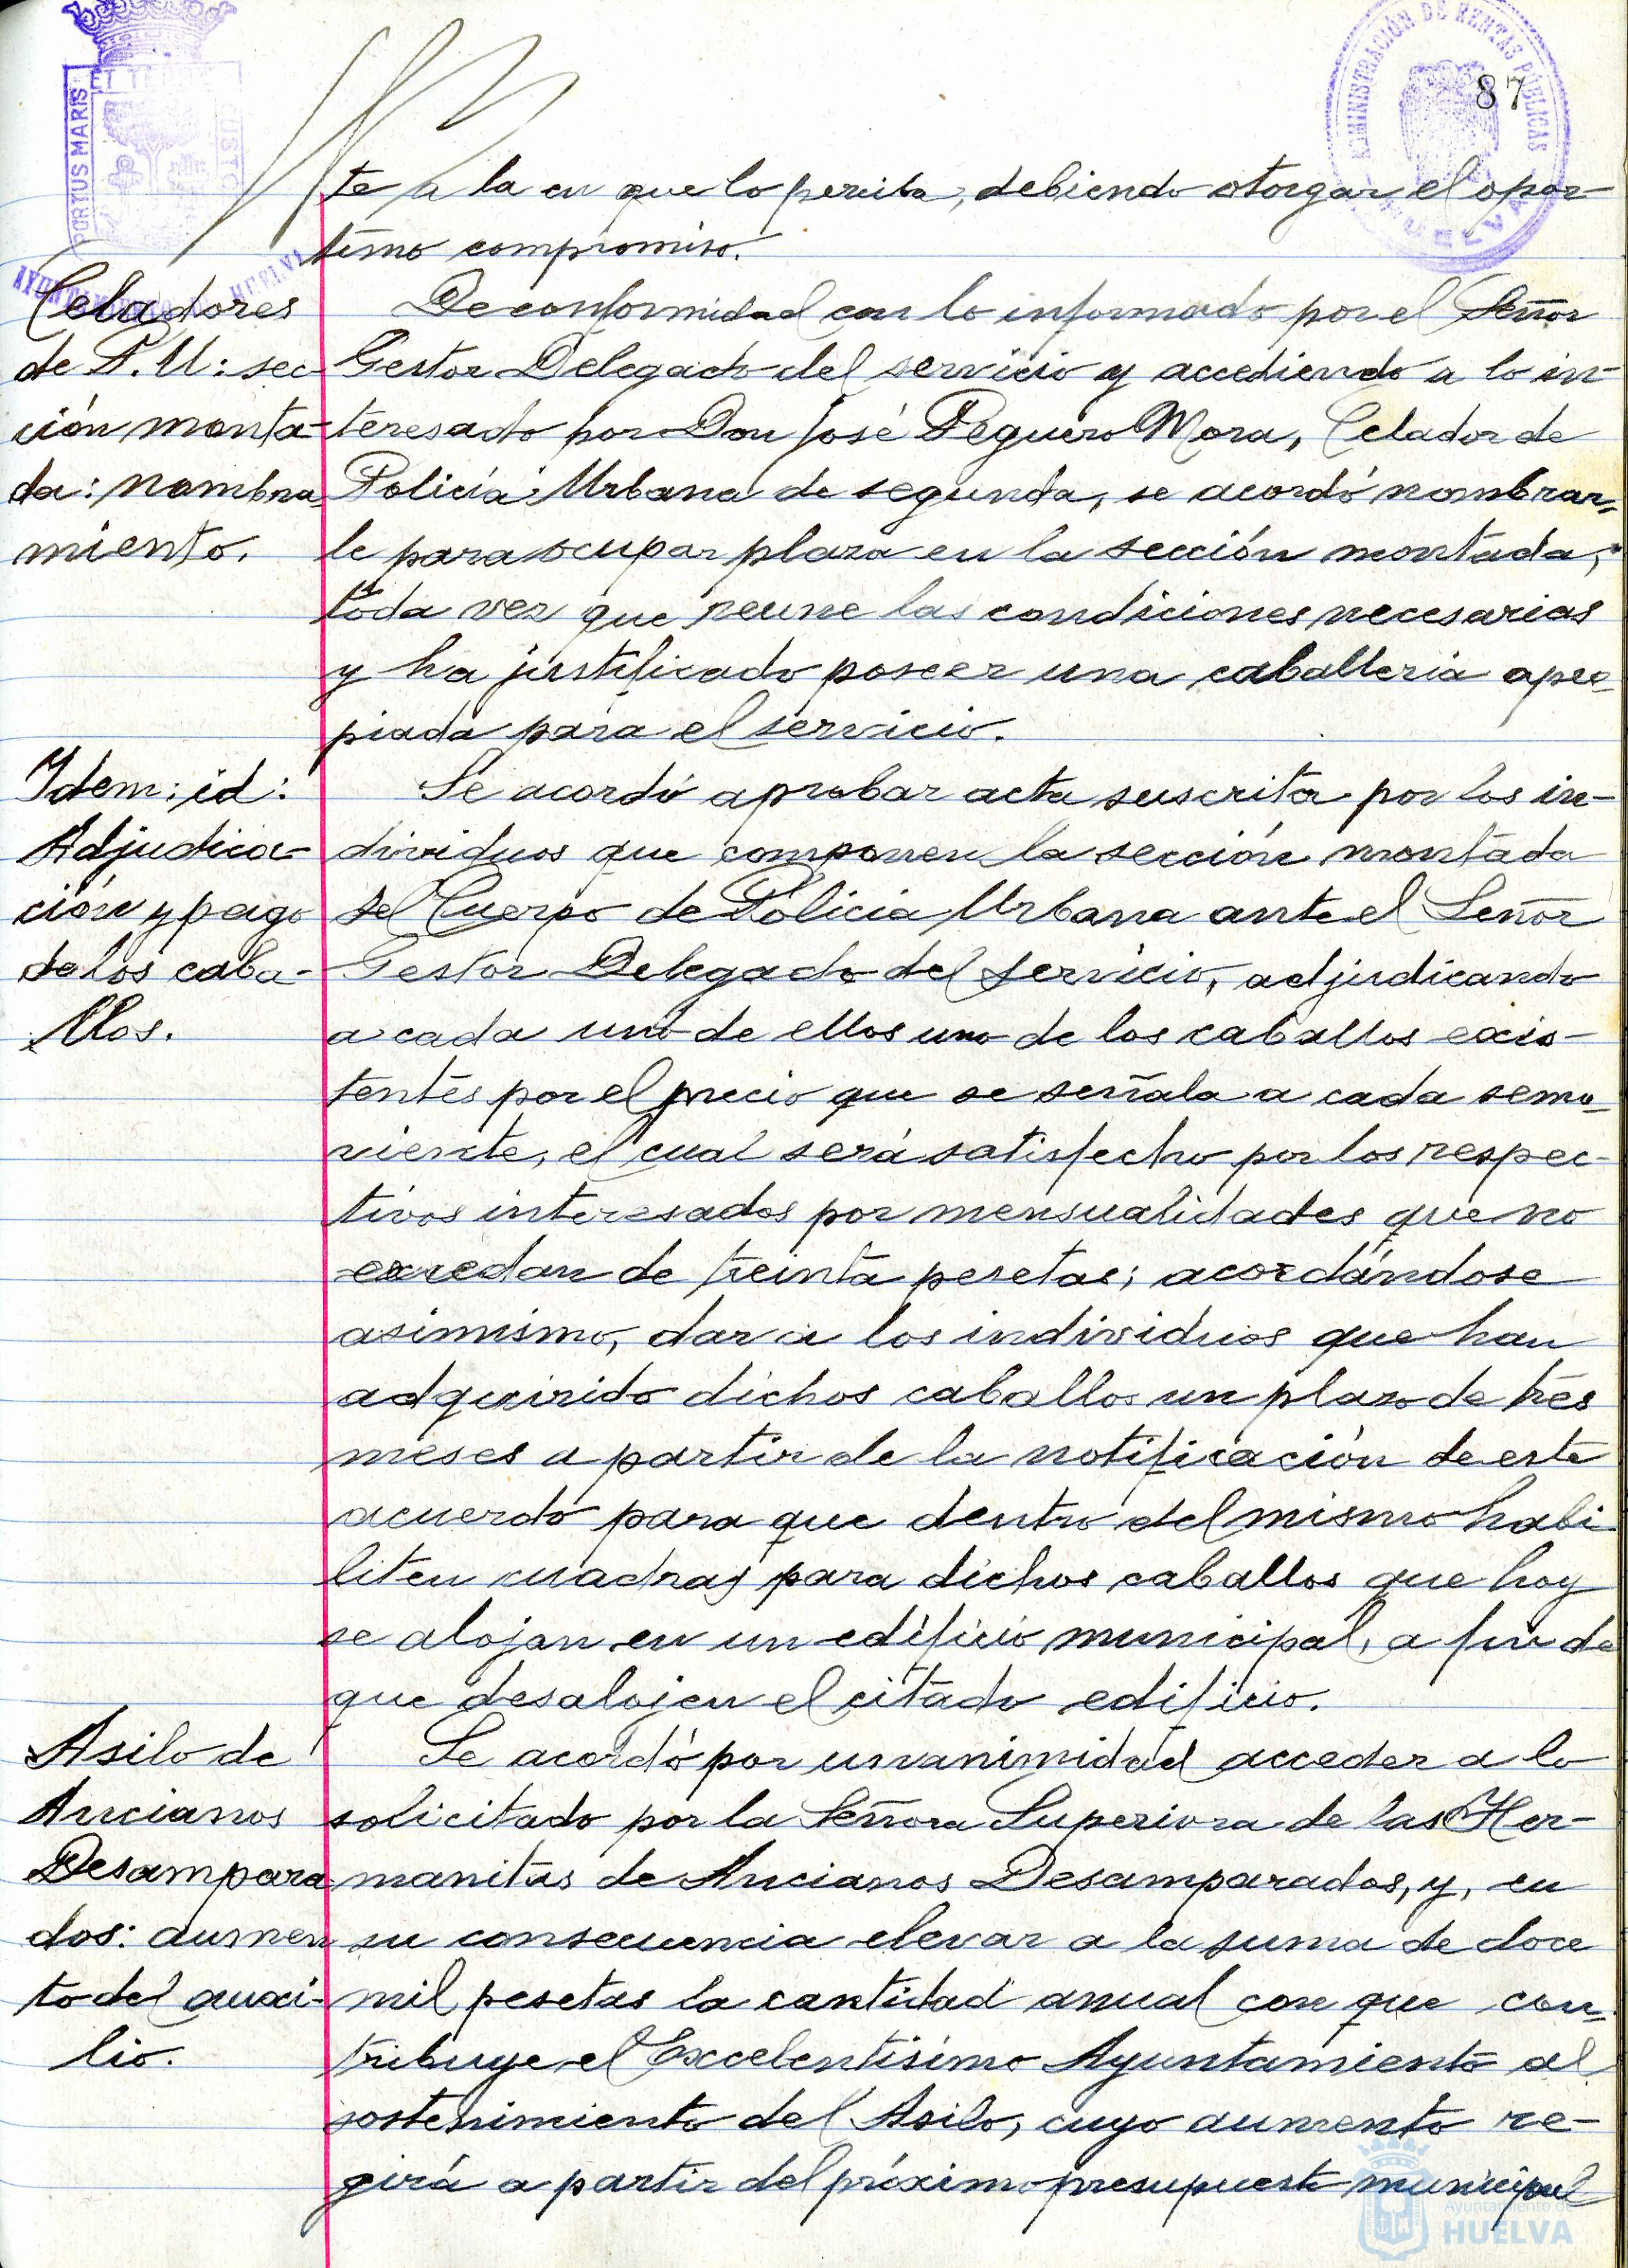 87
PORTUS MARIS ET TERRE CUSTO
AYUNTAMIENTO DE HUELVA
ADMINISTRACIÓN DE RENTAS PÚBLICAS
HUELVA
te a la en que lo perciba, debiendo otorgar el opor-
tuno compromiso.
Celadores
de P. U: sec-
ción monta-
da: nombra
miento.
De conformidad con lo informado por el Señor
Gestor Delegado del servicio y accediendo a lo in-
teresado por Don José Peguero Mora, Celador de
Policía Urbana de segunda, se acordó nombrar-
le para ocupar plaza en la sección montada,
toda vez que reune las condiciones necesarias
y ha justificado poseer una caballeria apro-
piada para el servicio.
Idem; id:
Adjudica-
ción y pago
de los caba-
llos.
Se acordó aprobar acta suscrita por los in-
dividuos que componen la sección montada
del Cuerpo de Policia Urbana ante el Señor
Gestor Delegado del servicio, adjudicando
a cada uno de ellos uno de los caballos exis-
tentes por el precio que se señala a cada semo-
viente, el cual será satisfecho por los respec-
tivos interesados por mensualidades que no
excedan de treinta pesetas; acordándose
asimismo, dar a los individuos que han
adquirido dichos caballos un plazo de tres
meses a partir de la notificación de este
acuerdo para que dentro del mismo habi-
liten cuadras para dichos caballos que hoy
se alojan en un edificio municipal, a fin de
que desalojen el citado edificio.
Asilo de
Ancianos
Desampara
dos: aumen
to del auxi-
lio.
Se acordó por unanimidad acceder a lo
solicitado por la Señora Superiora de las Her-
manitas de Ancianos Desamparados, y, en
su consecuencia elevar a la suma de doce
mil pesetas la cantidad anual con que con-
tribuye el Excelentísimo Ayuntamiento al
sostenimiento del Asilo, cuyo aumento re-
girá a partir del próximo presupuesto municipal
Ayuntamiento de
HUELVA